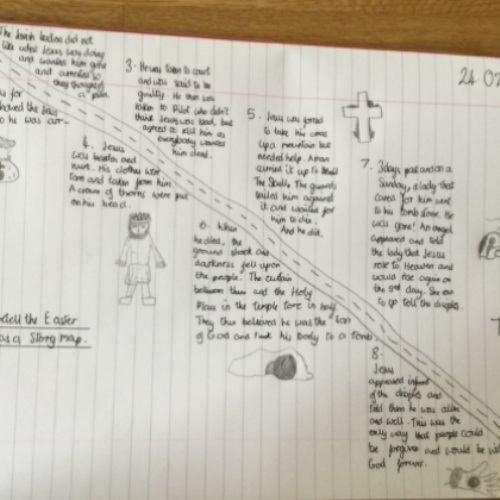 The Jewish leaders did not
like what Jesus was doing
and wanted him gone
and arrested so
they thought of
a plan.
3. He was taken to court
and was said to be
guilty. He then was
taken to Pilot who didn't
think Jesus was bad, but
agreed to kill him as
everybody wanted
him dead.
4. Jesus
was beaten and
hurt. His clothes were
tore and taken from him
A crown of thorns were put
on his head.
5. Jesus was forced
to take his cross
up a mountain but
needed help. A man
carried it up to
The Skull. The guards
nailed him against
it and waited for
him to die.
And he did.
6. When
he died, the
ground shook and
darkness fell upon
the people. The curtain
between them and the Holy
Place in the temple tore in half.
They then believed he was the Son
of God and took his body to a tomb.
7. 3 days past and on a
Sunday, a lady that
cared for him went
to his tomb stone. He
was gone! An angel
appeared and told
the lady that Jesus
rose to Heaven and
would rise again on
the 3rd day. She ran
to go tell the disciples.
8.
Jesus
appeared infront
of the disciples and
told them he was alive
and well. This was the
only way that people could
be forgiven and would be with
God forever.
24.02
the Easter
as a Story map.